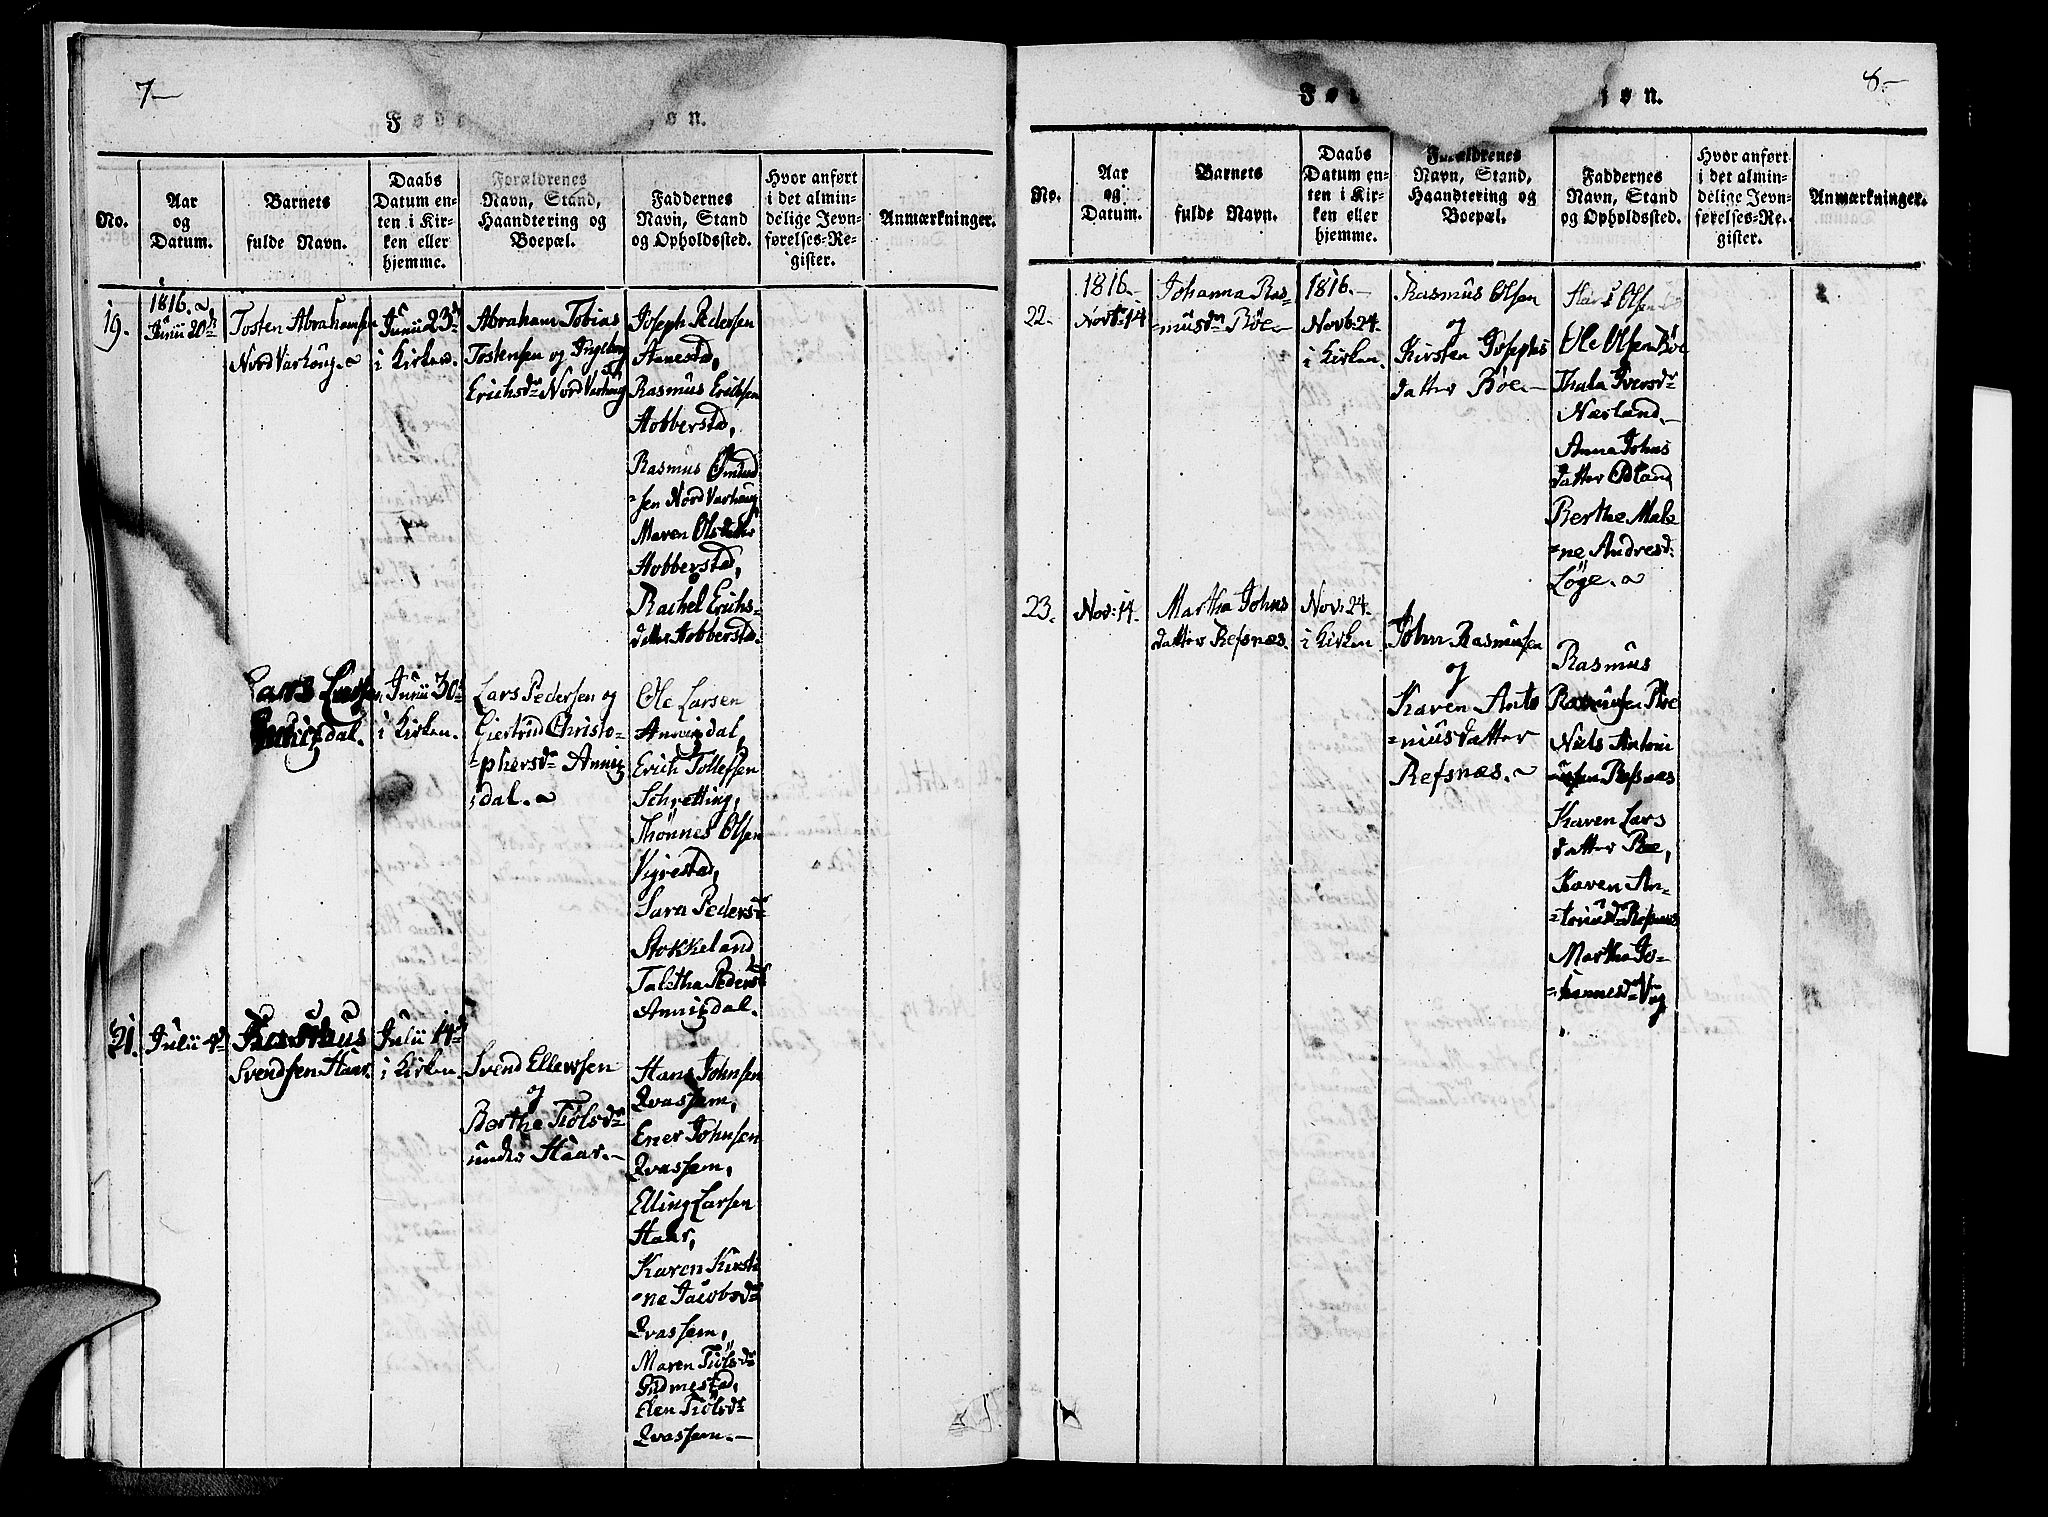 7
No.
Aar
og
Datum.
Barnets
fulde Navn.
Daabs
Datum en-
ten i Kir-
ken eller
hjemme.
Forældrenes
Navn, Stand,
Haandtering og
Boepæl.
Faddernes
Navn, Stand
og Opholdssted.
Hvor anført
i det almin-
delige Jevn-
førelses-Re-
gister.
Anmærkninger.
19.
1816.
Junii 20d
Tosten Abrahamsen
Nord Varhoug.
Junii 23d
i Kirken.
Abraham Tobias
Tostensen og Ingeborg
Erichsdr Nord Varhoug
Joseph Pedersen
Aanestad,
Rasmus Erichsen
Hobberstad,
Rasmus Omund
=sen Nord Varhoug
Maren Olsdatter
Hobberstad,
Rachel Erichs-
datter Hobberstad.
Lars Larsen
dal.
Junii 30d
i Kirken.
Lars Pedersen og
Giertrud Christo-
=phersdr Anniz
=dal.
Ole Larsen
Annizdal,
Erich Tollefsen
Schretting,
Thønnes Olsen
Vigrestad,
Sara Pedersdr
Stokkeland
Talitha Pedersdr
Annizdal.
21.
Julii 4d
Svendsen Haar.
Julii 14d
i Kirken.
Svend Ellewsen
og
Berthe Tiølsdr
under Haar.
Hans Johnsen
Qvassem,
Ener Johnsen
Qvassem,
Elling Larsen
Haar,
Karen Kirsti
=ne Jacobsdr
Qvassem,
Maren Tiølsdr
Gudmestad,
Elen Tiølsdr
Qvassem.
8
No.
Aar
og
Datum.
Barnets
fulde Navn.
Daabs
Datum en-
ten i Kir-
ken eller
hjemme.
Forældrenes
Navn, Stand,
Haandtering og
Boepæl.
Faddernes
Navn, Stand
og Opholdssted.
Hvor anført
i det almin-
delige Jevn-
førelses-Re-
gister.
Anmærkninger.
22.
1816
Novb: 14
Johanna Ras-
=musdr Bøe
1816.
Novb: 24.
i Kirken.
Rasmus Olsen
og
Kirsten Josephs
datter Bøe
Hans Olsen
Ole Olsen Bøe
Thala Iversdr
Nærland
Anna Johns
datter Ødland
Berthe Male
=ne Andresd:
Løge.
23.
Nov: 14.
Martha Johns
datter Refsnæs.
Nov: 24.
i Kirken
John Rasmusen
og
Karen Anto
=niusdatter
Refsnæs.
Rasmus
Rasmusen Bøe
Niels Antoni
usen Refsnæs
Karen Lars
datter Bøe,
Karen An-
=toniusdr Refsnæs
Martha Jo-
=hannesdr Vig